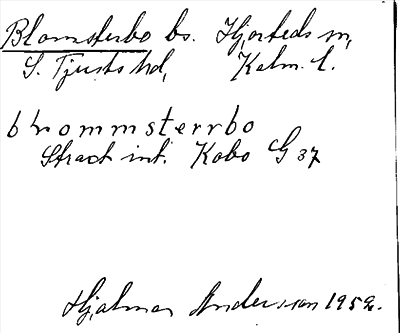 Blomsterbo bs. Hjorteds sn,
S. Tjusts hd, Kalm. l.
blommsterrbo
Strax int. Kobo G 37
Hjalmar Andersson 1952.